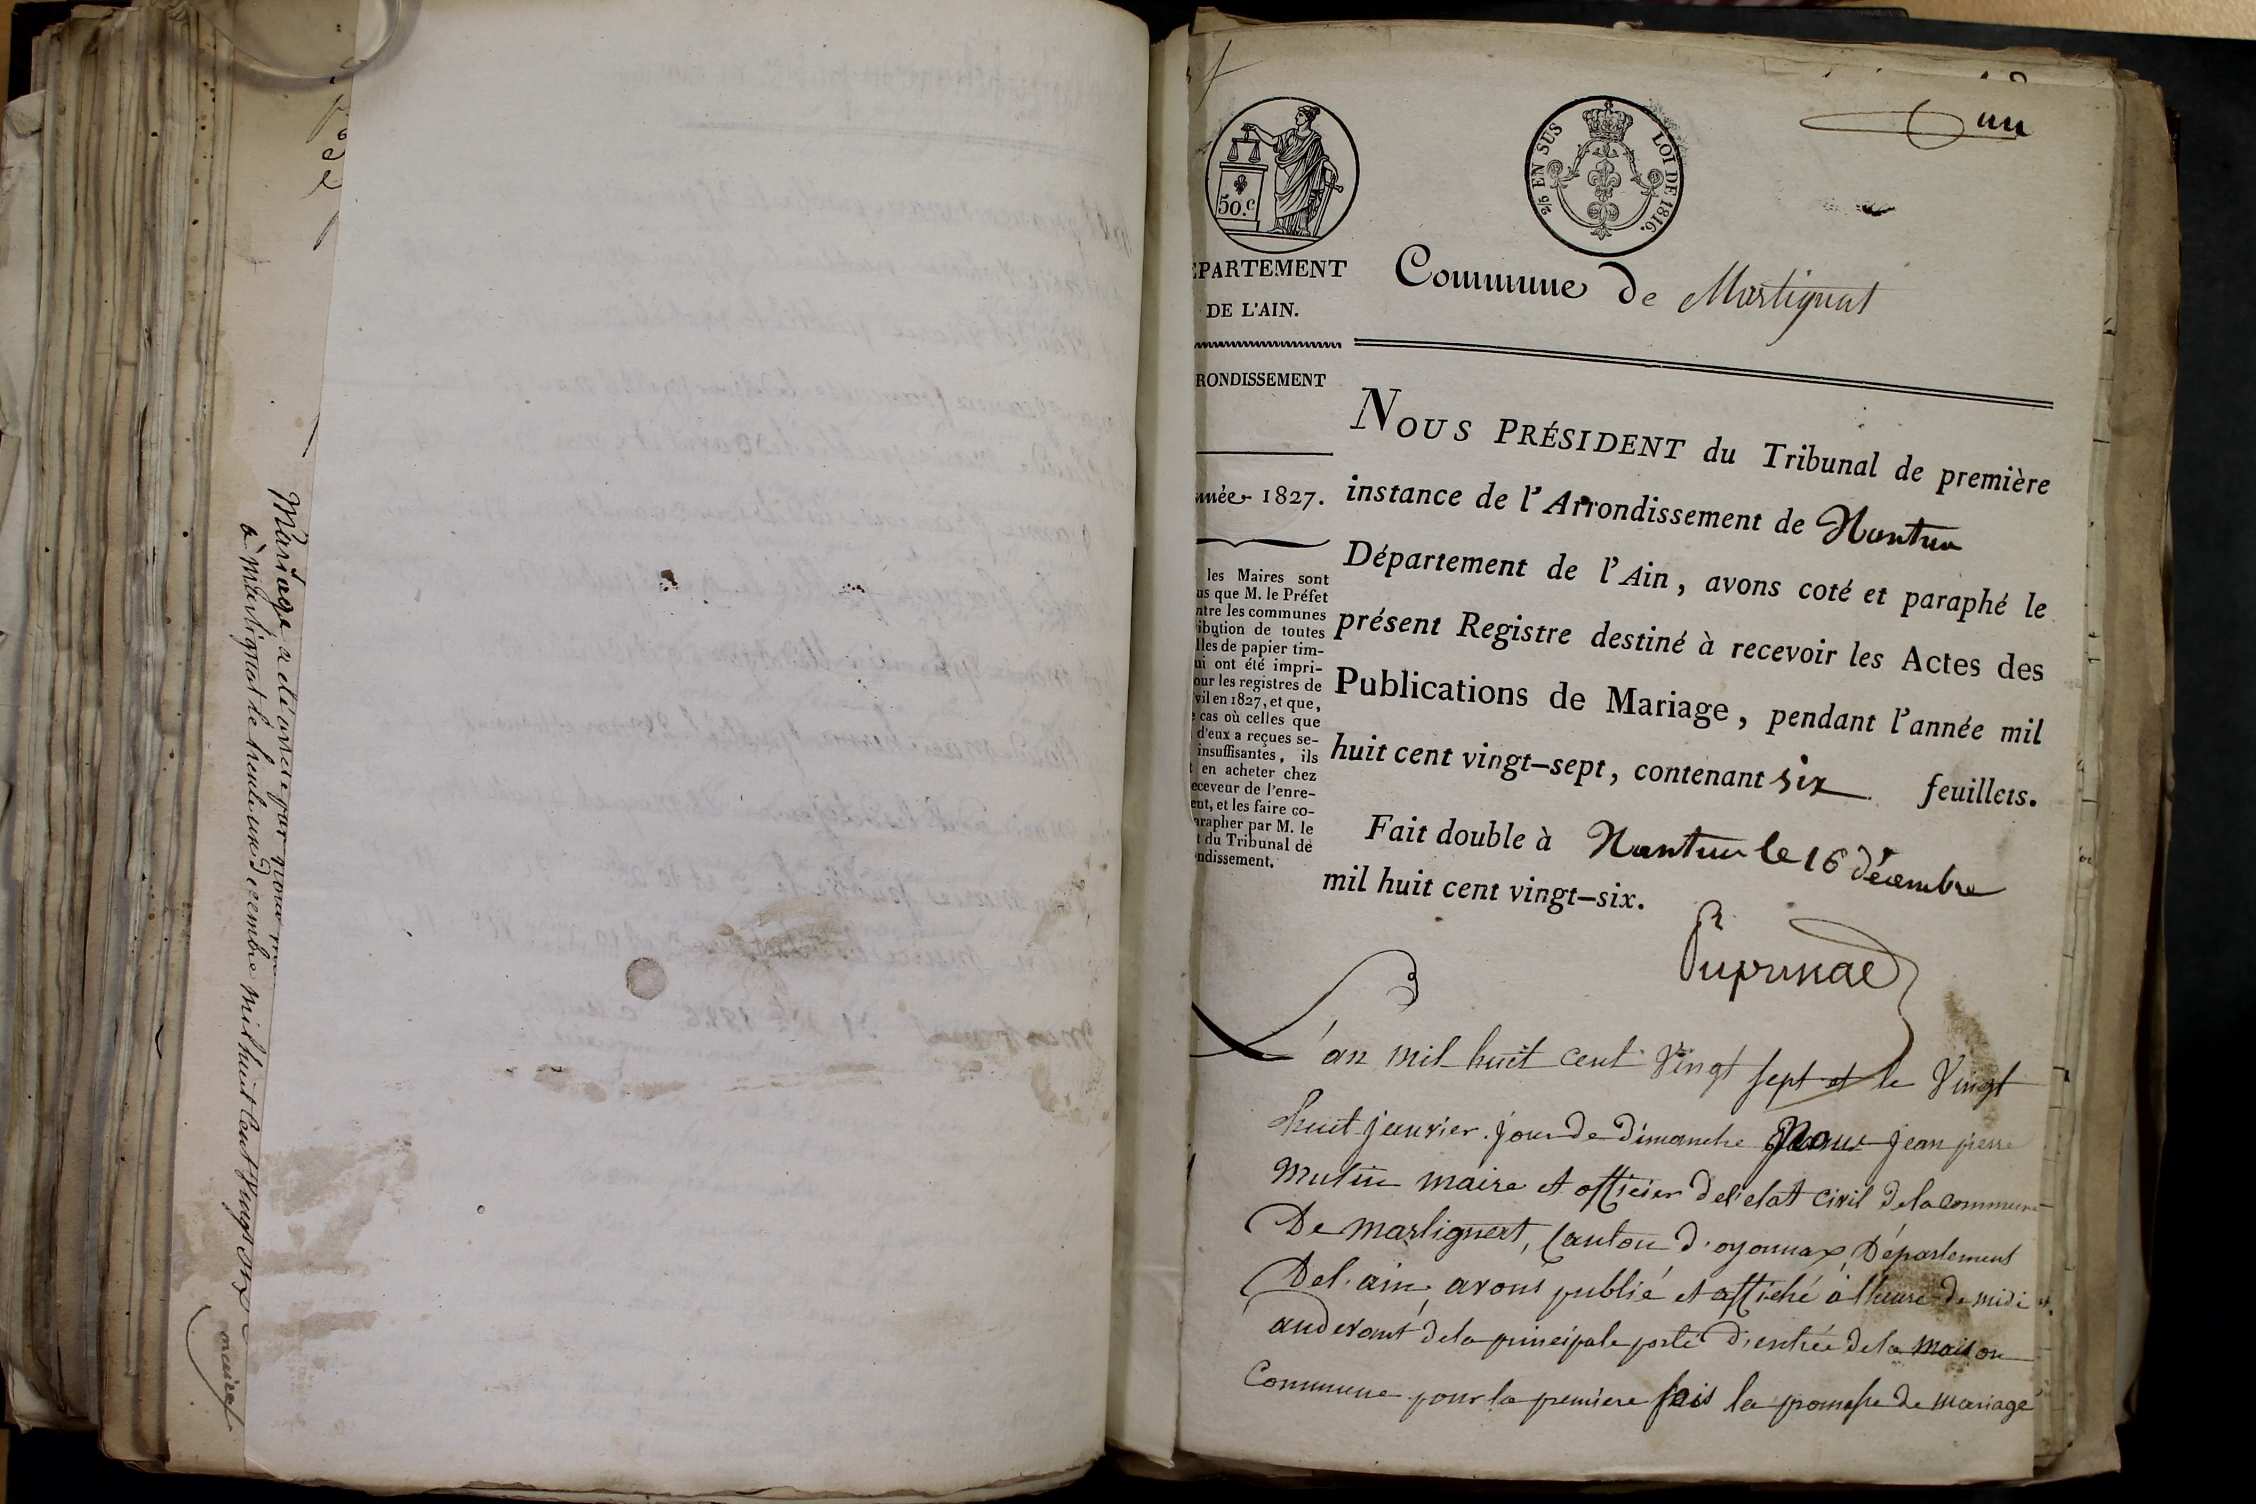 Mariage a été arrêté par nous
à Martignat le trente un Decembre mil huit Cent Vingt six
maire
un
50.c
2/5 EN SUS LOI DE 1816.
EPARTEMENT
DE L'AIN.
Commune de Martignat
RONDISSEMENT
nnée 1827.
les Maires sont
us que M. le Préfet
ntre les communes
ibution de toutes
lles de papier tim-
ui ont été impri-
our les registres de
vil en 1827, et que,
e cas où celles que
d'eux a reçues se-
insuffisantes, ils
t en acheter chez
eceveur de l'enre-
ent, et les faire co-
arapher par M. le
t du Tribunal de
ndissement.
NOUS PRÉSIDENT du Tribunal de première
instance de l'Arrondissement de Nantua
Département de l'Ain, avons coté et paraphé le
présent Registre destiné à recevoir les Actes des
Publications de Mariage, pendant l'année mil
huit cent vingt-sept, contenant six feuillets.
Fait double à Nantua le 16 décembre
mil huit cent vingt-six.
L'an mil huit cent Vingt sept et le Vingt
huit janvier jour de dimanche Nous jean pierre
mutin maire et officier del'etat civil dela commune
De martignat, Canton d'oyonnax, Département
Del'ain, avons publié et affiché à l'heure de midi et
audevant dela principale porte d'entrée dela maison
Commune pour la premiere fois la promesse de mariage